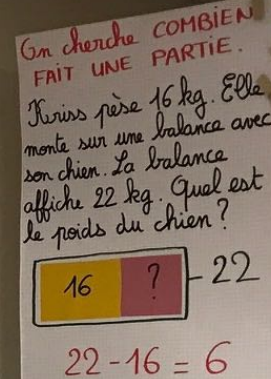 On cherche COMBIEN
FAIT UNE PARTIE.
Kriss pèse 16 kg. Elle
monte sur une balance avec
son chien. La balance
affiche 22 kg. Quel est
le poids du chien ?
16 ? - 22
22 - 16 = 6